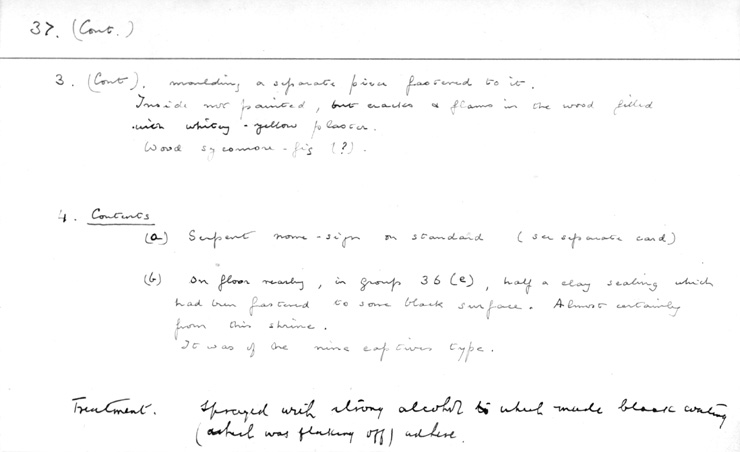 37. (Cont.)
3. (Cont). moulding a separate piece fastened to it.
Inside not painted, but cracks & flaws in the wood filled
with whitey-yellow plaster.
Wood sycomore-fig (?).
4. Contents
(a) Serpent nome-sign on standard (see separate card)
(b) On floor nearby, in group 36 (e), half a clay sealing which
had been fastened to some black surface. Almost certainly
from this shrine.
It was of the nine captives type.
Treatment. Sprayed with strong alcohol which made black coating
(which was flaking off) adhere.